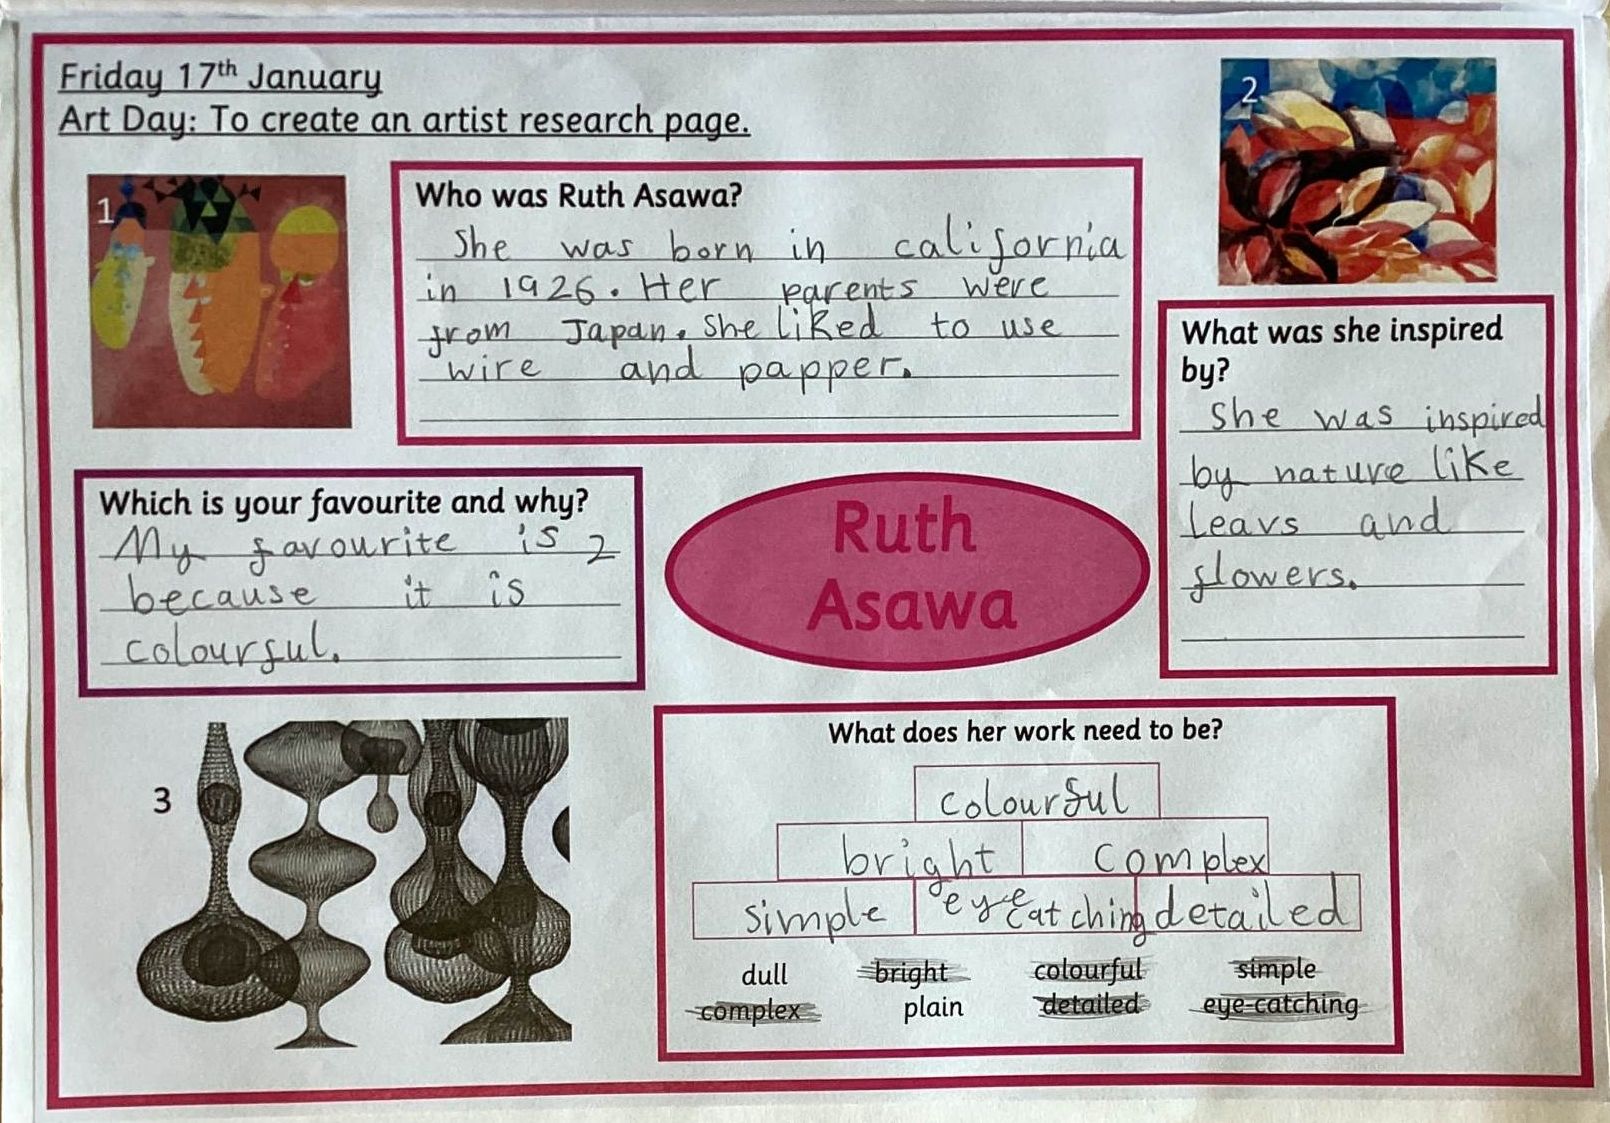 Friday 17th January
Art Day: To create an artist research page.
1
2
Who was Ruth Asawa?
She was born in california
in 1926. Her parents were
from Japan. She liked to use
wire and papper.
What was she inspired
by?
She was inspired
by nature like
leavs and
flowers.
Which is your favourite and why?
My favourite is 2
because it is
colourful.
Ruth
Asawa
3
What does her work need to be?
colourful
bright complex
simple eye catching detailed
dull bright colourful simple
complex plain detailed eye-catching